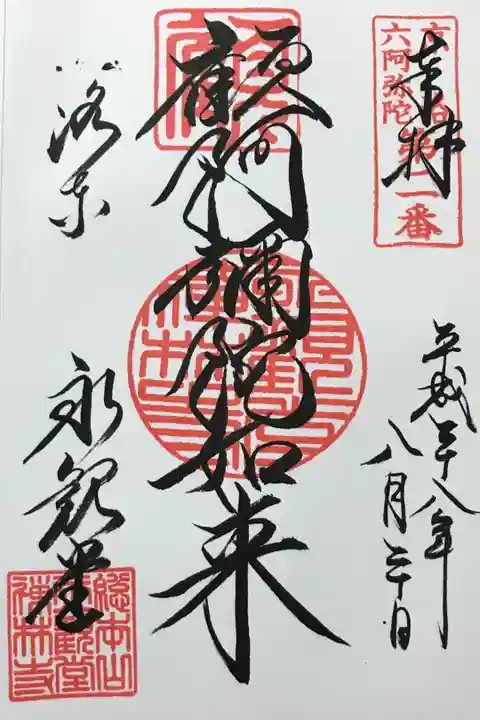 奉拝
六阿弥陀
番
平成二十八年
八月二十日
顧阿彌陀如来
洛東
永観堂
総本山
永観堂
禪林寺